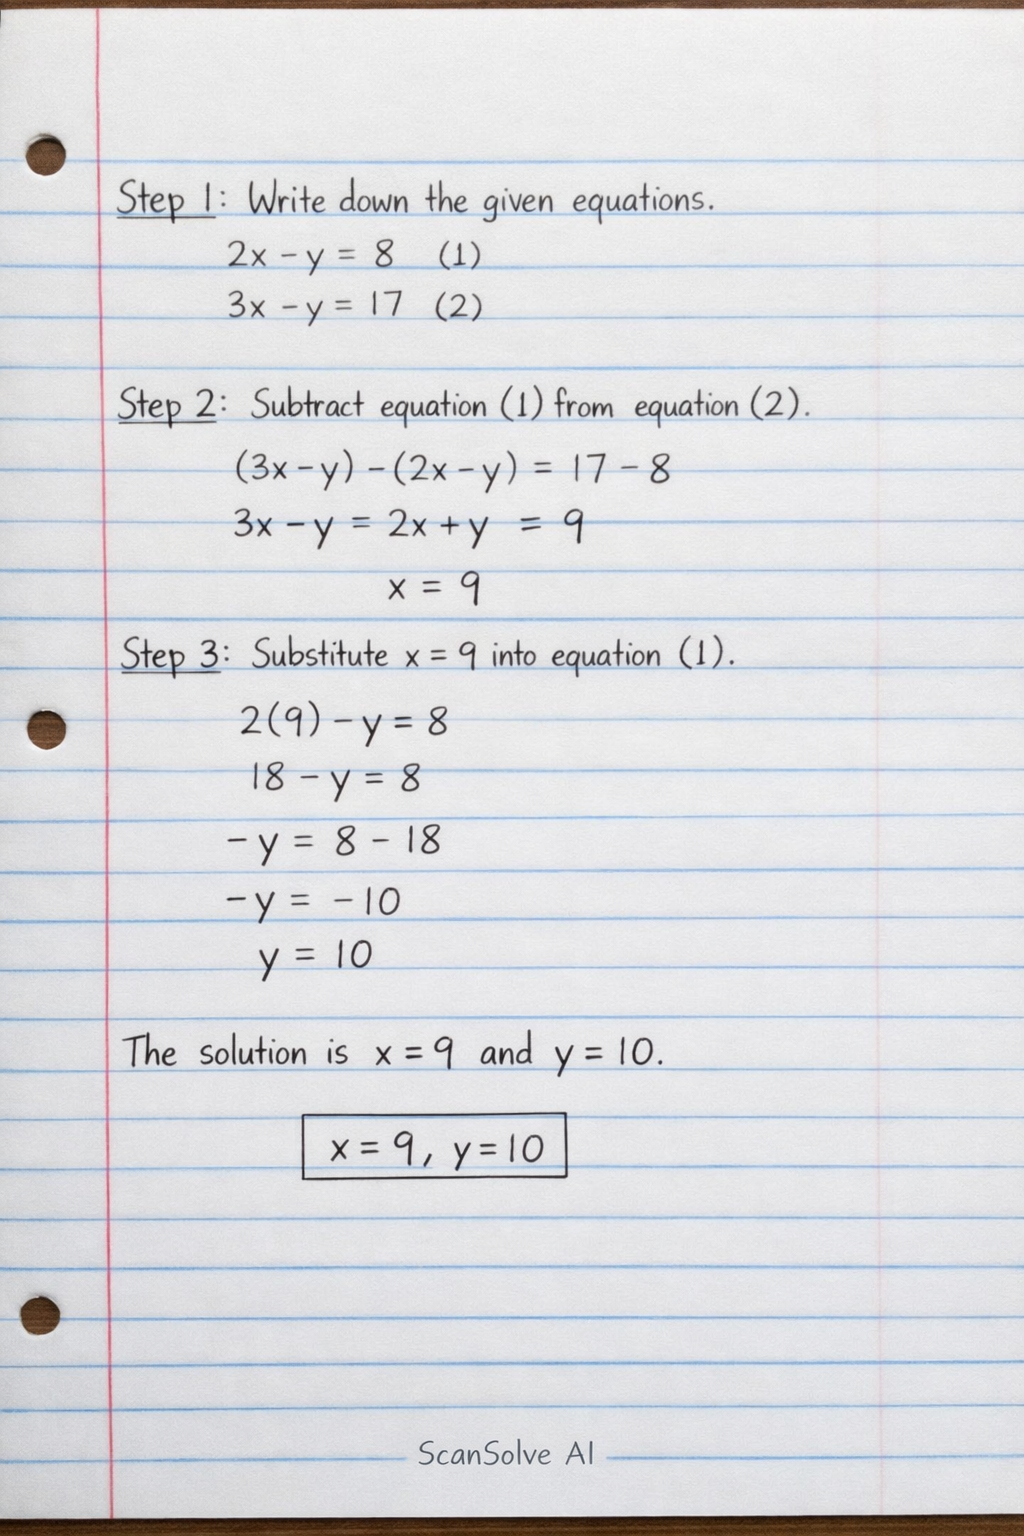 Step 1: Write down the given equations.
2x - y = 8 (1)
3x - y = 17 (2)
Step 2: Subtract equation (1) from equation (2).
(3x - y) - (2x - y) = 17 - 8
3x - y = 2x + y = 9
x = 9
Step 3: Substitute x = 9 into equation (1).
2(9) - y = 8
18 - y = 8
- y = 8 - 18
- y = -10
y = 10
The solution is x = 9 and y = 10.
x = 9, y = 10
ScanSolve AI